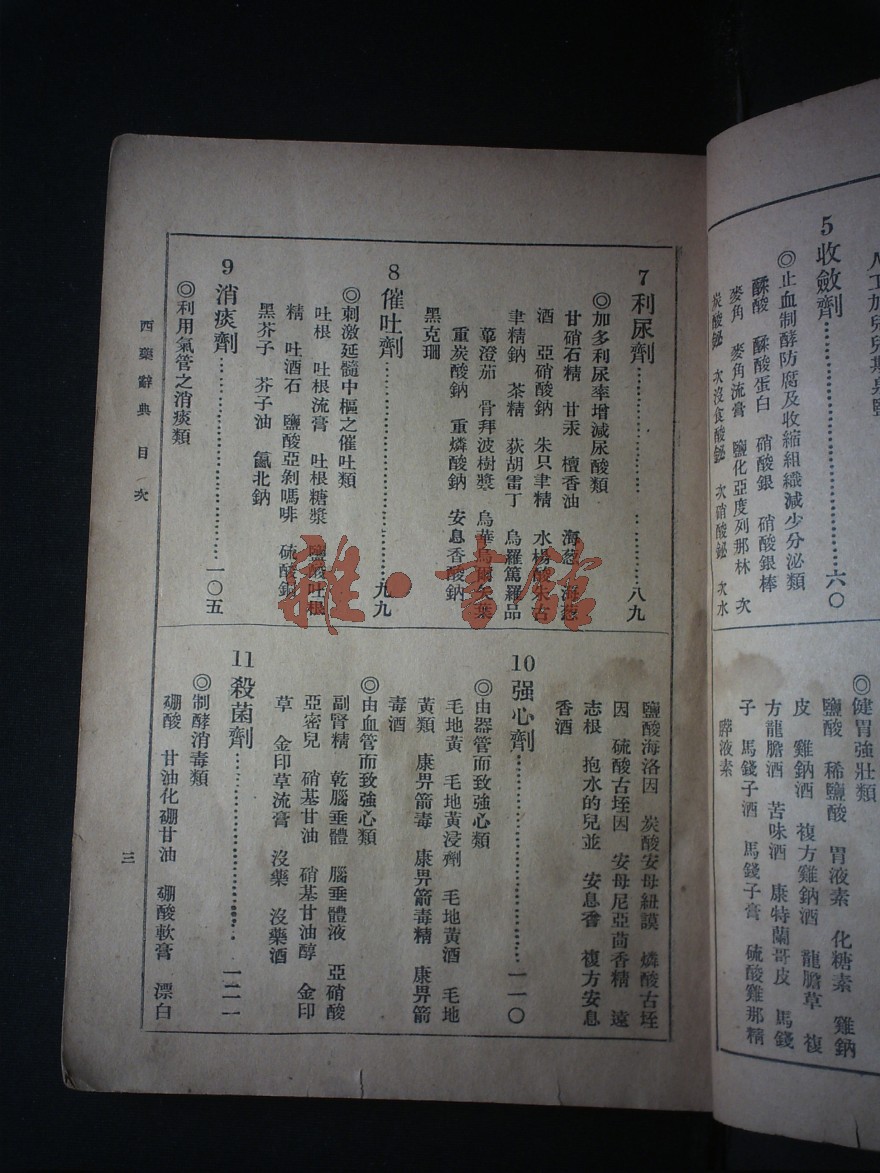 人工加
5 收斂劑……六〇
◎止血制酵防腐及收縮組織減少分泌類
鞣酸 鞣酸蛋白 硝酸銀 硝酸銀棒
麥角 麥角流膏 鹽化亞度列那林 次
炭酸鉍 次沒食酸鉍 次硝酸鉍 次水
◎健胃強壯類
鹽酸 稀鹽酸 胃液素 化糖素 雞鈉
皮 雞鈉酒 複方雞鈉酒 龍膽草 複
方龍膽酒 苦味酒 康特蘭哥皮 馬錢
子 馬錢子酒 馬錢子膏 硫酸雞那精
膵液素
7 利尿劑……八九
◎加多利尿率增減尿酸類
甘硝石精 甘汞 檀香油 海葱 海葱
酒 亞硝酸鈉 朱只聿精 水楊酸朱古
聿精鈉 茶精 荻胡雷丁 烏羅篤羅品
蓽澄茄 骨拜波樹漿 烏華烏爾矢葉
重炭酸鈉 重燐酸鈉 安息香酸鈉
黑克珊
8 催吐劑……九九
◎刺激延髓中樞之催吐類
吐根 吐根流膏 吐根糖漿 鹽酸吐根
精 吐酒石 鹽酸亞剝嗎啡 硫酸銅
黑芥子 芥子油 氯化鈉
9 消痰劑……一〇五
◎利用氣管之消痰類
鹽酸海洛因 炭酸安母紐謨 燐酸古垤
因 硫酸古垤因 安母尼亞茴香精 遠
志根 抱水的兒並 安息香 複方安息
香酒
10 强心劑……一一〇
◎由器管而致強心類
毛地黃 毛地黃浸劑 毛地黃酒 毛地
黃類 康畀箭毒 康畀箭毒精 康畀箭
毒酒
◎由血管而致強心類
副腎精 乾腦垂體 腦垂體液 亞硝酸
亞密兒 硝基甘油 硝基甘油醇 金印
草 金印草流膏 沒藥 沒藥酒
11 殺菌劑……一二一
◎制酵消毒類
硼酸 甘油化硼甘油 硼酸軟膏 漂白
西藥辭典 目次
三
雜·書館